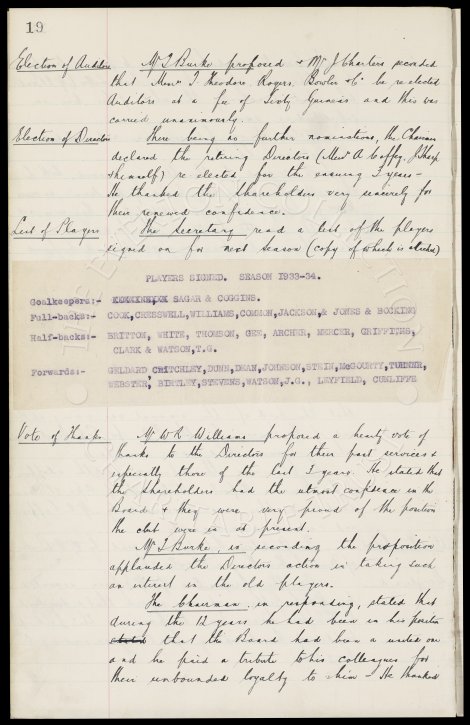 19
Election of Auditors Mr T Burke proposed & Mr J Charters seconded
that Messrs T. Theodore Rogers Bowler & Co be re elected
Auditors at a fee of Sixty Guineas and this was
carried unanimously.
Election of Directors There being no further nominations, the Chairman
declared the retiring Directors (Messrs A Coffey, J Sharp
& himself) re elected for the ensuing 3 years –
He thanked the Shareholders very sincerely for
their renewed confidence.
List of Players The Secretary read a list of the players
signed on for next season (copy of which is attached)
PLAYERS SIGNED. SEASON 1933-34.
Goalkeepers:- SAGAR & COGGINS.
Full-backs:- COOK, CRESSWELL, WILLIAMS, COMMON, JACKSON, & JONES & BOCKING
Half-backs:- BRITTON, WHITE, THOMSON, GEE, ARCHER, MERCER, GRIFFITHS,
CLARK & WATSON, T.G.
Forwards:- GELDARD CRITCHLEY, DUNN, DEAN, JOHNSON, STEIN, McGOURTY, TURNER,
WEBSTER, BIRTLEY, STEVENS, WATSON, J.G., LEYFIELD, CUNLIFFE
Vote of Thanks Mr W R Williams proposed a hearty vote of
thanks to the Directors for their past services &
especially those of the last 3 years. He stated that
the shareholders had the utmost confidence in the
Board & they were very proud of the position
the club were in at present.
Mr T Burke, in seconding the proposition
applauded the Directors action in taking such
an interest in the old players.
The Chairman, in responding, stated that
during the 12 years he had been in his position
stated that the Board had been a united one
and he paid a tribute to his colleagues for
their unbounded loyalty to him – He thanked